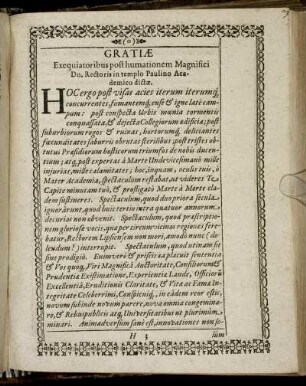 (o)
GRATIÆ
Exequiatoribus post humationem Magnifici
Dn. Rectoris in templo Paulino Aca-
demico dictæ.
HOC ergo post visas acies iterum iterumq́;
concurrentes, fumantemq́; ense & igne latè cam-
pum: post conspecta Urbis munia tormentis
conquassata, & dejecta Collegiorum ædificia; post
suburbiorum rogos & ruinas, hortorumq́; deliciantes
fœcunditates saburrâ obrutas sterilibus: post tristes ob-
tutus Præsidiorum hosticorum triumfos de nobis ducen-
tium; atq́; post expertas à Marte Undevicesimanô mille
injurias, mille calamitates; hoc, inquam, oculis tuis, ô
Mater Academia, spectaculum restabat, ut videres Te
Capite minutam tuô, & profligatô Marte à Marte cla-
dem sustineres. Spectaculum, quod duo priora secula
ignorârunt, quod huic tertio intra quatuor annorum
decurias non obvenit. Spectaculum, quod præscriptio-
nem gloriosæ vocis, qua per circumvicinas regiones fere-
batur, Rectorem Lipsensem non mori, amodò nunc (do-
lendum!) interrupit. Spectaculum, quod utinam sit
sine prodigiô. Enimverò & priscis ea placuit sententia
& Vos quoq́; Viri Magnifici Auctoritate, Consiliorum &
Prudentiâ Existimatione, Experientiâ Laude, Officiorũ
Excellentiâ, Eruditionis Claritate, & Vitæ ac Famæ In-
tegritate Celeberrimi, Conspicuiq́;, in eâdem reor estis,
novum subinde nobis parere, novâ omnia congemina-
ri, & Rebuspublicis atq́; Universitatibus ut plurimùm
minari. Animadversum sanè est, innovationes non so-
H 2
lùm